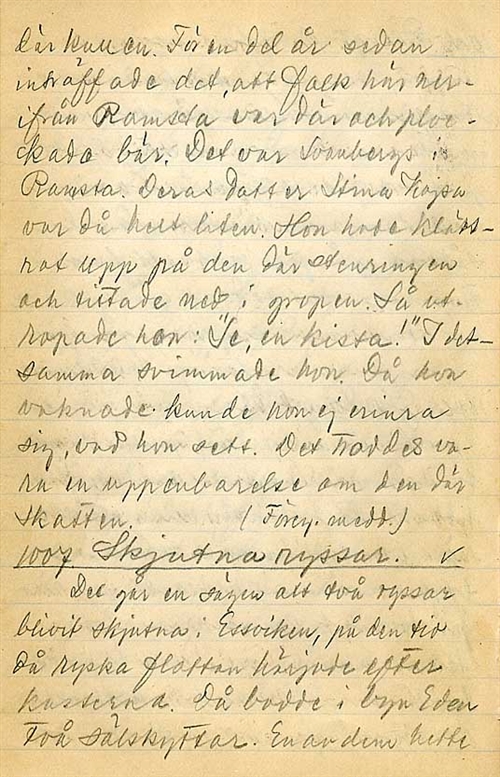 där kullen. För en del år sedan
inträffade det, att folk här ner-
ifrån Ramsta var där och ploc-
kade bär. Det var Svanbergs i
Ramsta. Deras dotter Stina Kajsa
var då helt liten. Hon hade klätt-
rat upp på den där stenringen
och tittade ned i gropen. Så ut-
ropade hon: "Se, en kista!" I det-
samma svimmade hon. Då hon
vaknade kunde hon ej erinra
sig, vad hon sett. Det troddes va-
ra en uppenbarelse om den där
skatten. (Föreg. medd.)
1007. Skjutna ryssar. ✓
Det går en sägen att två ryssar
blivit skjutna i Essviken, på den tid
då ryska flottan härjade efter
kusterna. Då bodde i byn Eden
två sälskyttar. En av dem hette